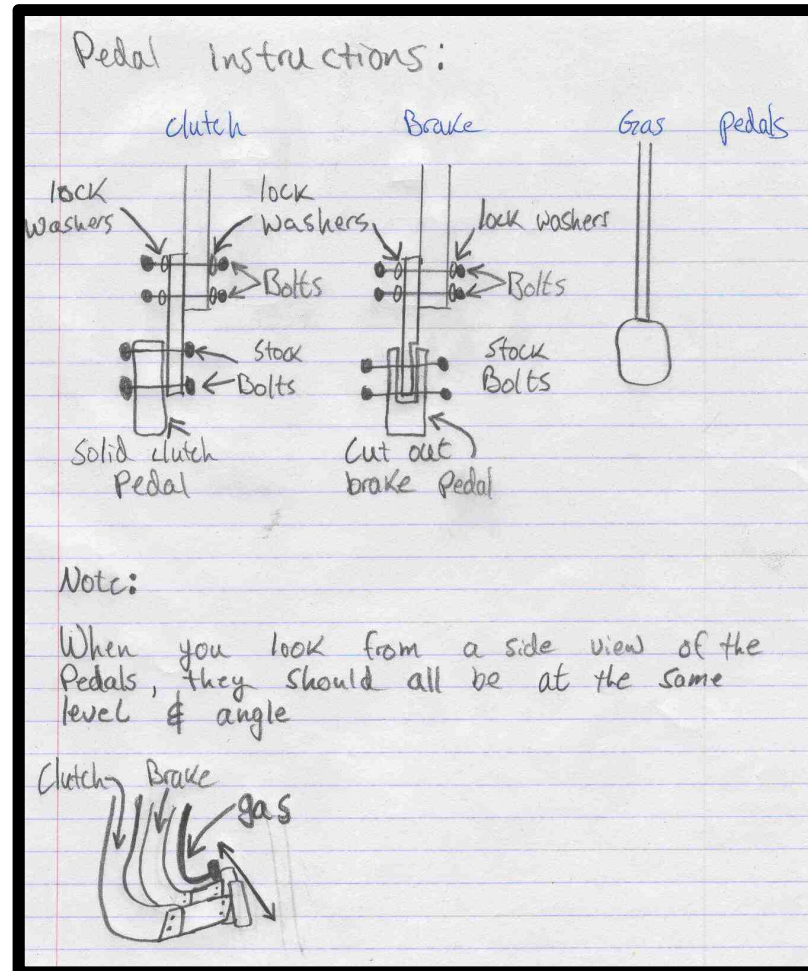 Pedal instructions:
Clutch Brake Gas pedals
lock
washers
lock
washers
lock washers
Bolts
Bolts
Stock
Bolts
Stock
Bolts
Solid clutch
Pedal
Cut out
brake Pedal
Note:
When you look from a side view of the
Pedals, they should all be at the same
level & angle
Clutch Brake
gas